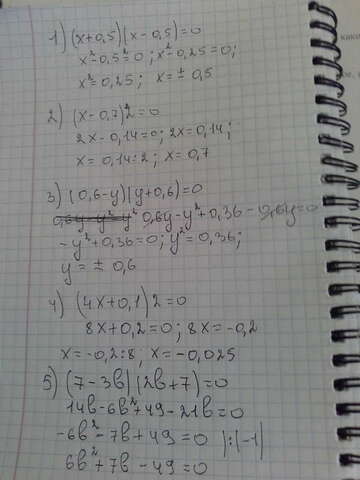 1) (x+0,5)(x-0,5)=0
x²-0,5²=0; x²-0,25=0;
x²=0,25; x=±0,5
2) (x-0,7)2=0
2x-0,14=0; 2x=0,14;
x=0,14:2; x=0,7
3) (0,6-y)(y+0,6)=0
0,6y-y²+0,36-0,6y=0
-y²+0,36=0; y²=0,36;
y=±0,6
4) (4x+0,1)2=0
8x+0,2=0; 8x=-0,2
x=-0,2:8; x=-0,025
5) (7-3b)(2b+7)=0
14b-6b²+49-21b=0
-6b²-7b+49=0 |:(-1)
6b²+7b-49=0